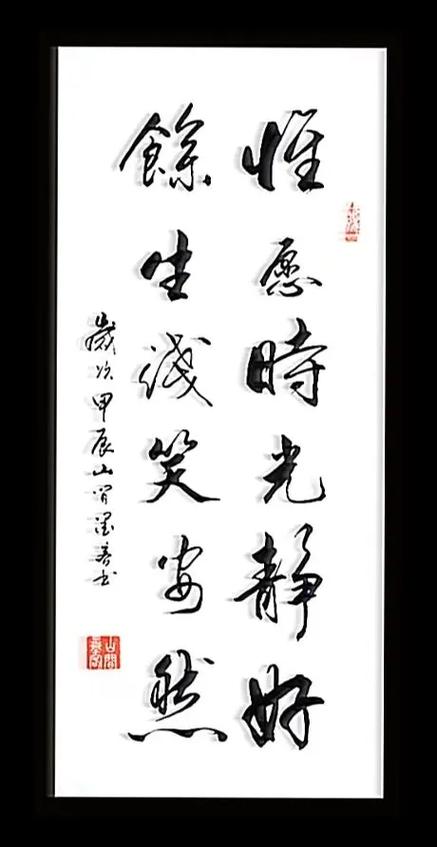 惟愿時光靜好
餘生淺笑安然
歲次甲辰山間墨客书